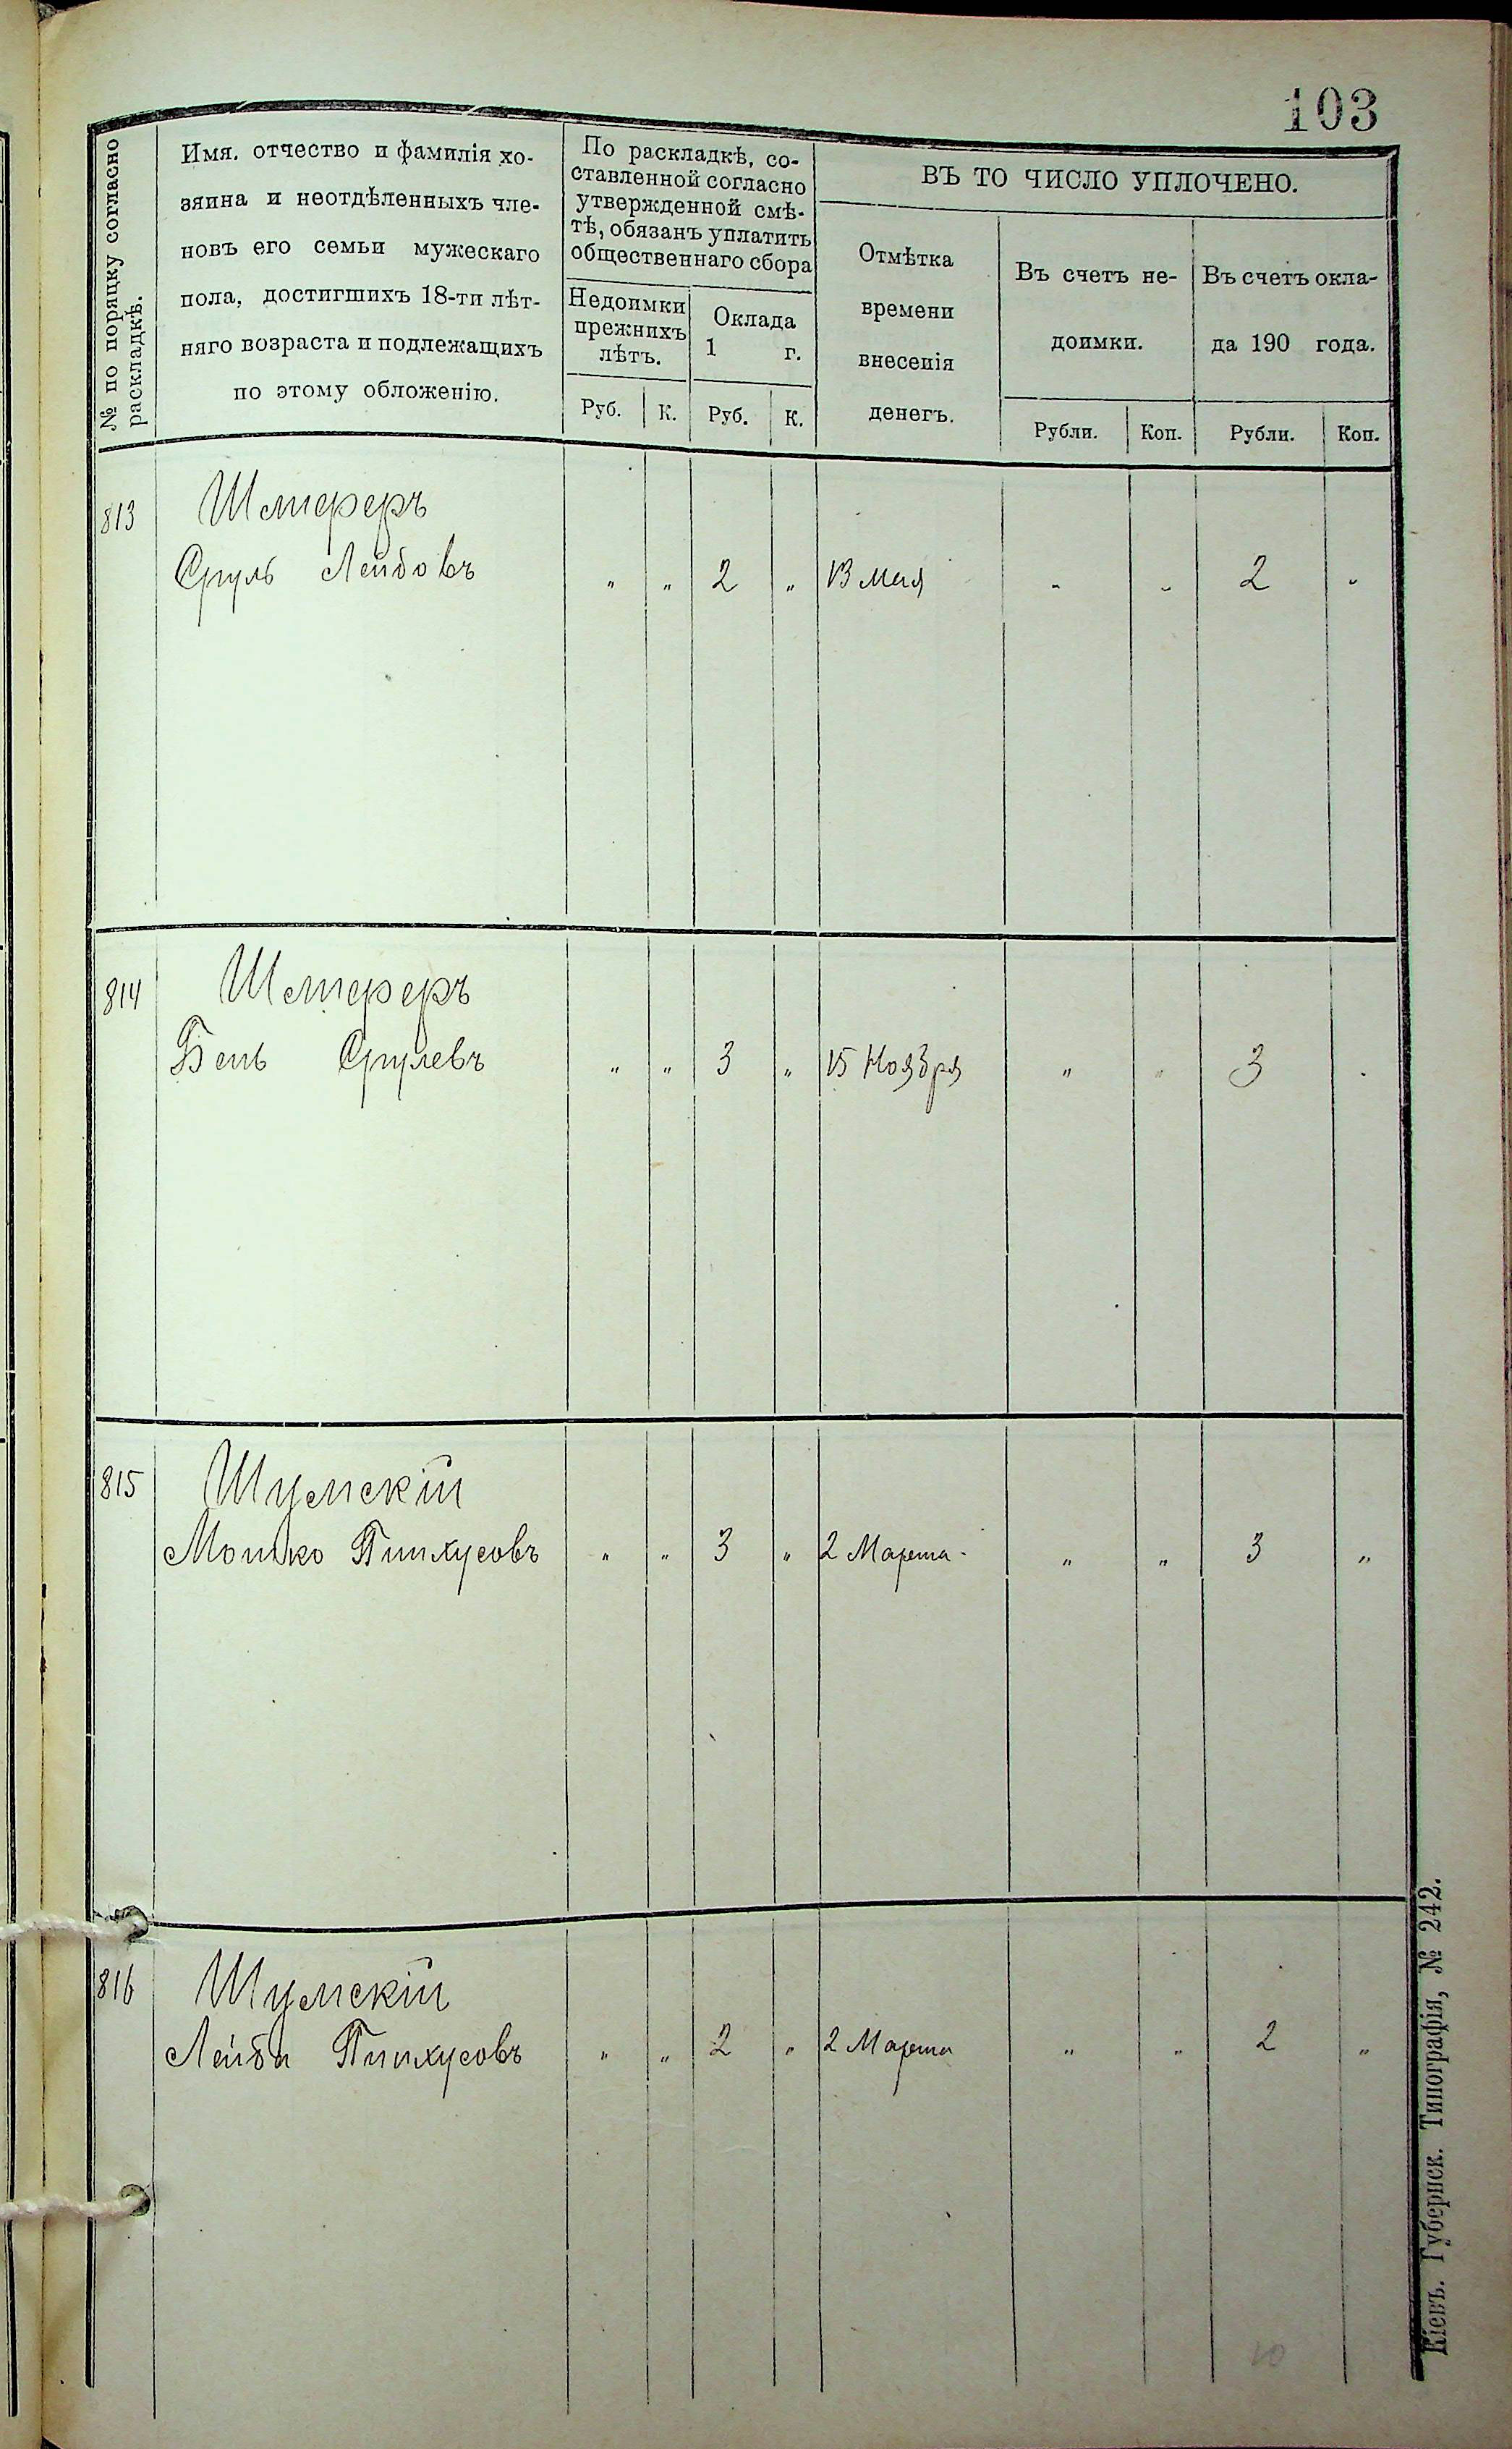 103
№ по порядку согласно
раскладкѣ.
Имя, отчество и фамилія хо-
зяина и неотдѣленныхъ чле-
новъ его семьи мужескаго
пола, достигшихъ 18-ти лѣт-
няго возраста и подлежащихъ
по этому обложенію.
По раскладкѣ, со-
ставленной согласно
утвержденной смѣ-
тѣ, обязанъ уплатить
общественнаго сбора
Недоимки
прежнихъ
лѣтъ.
Оклада
1 г.
Руб. К. Руб. К.
ВЪ ТО ЧИСЛО УПЛОЧЕНО.
Отмѣтка
времени
внесенія
денегъ.
Въ счетъ не-
доимки.
Въ счетъ окла-
да 190 года.
Рубли. Коп. Рубли. Коп.
813 Штереръ
Сруль Лейбовъ „ „ 2 „ 13 Мая „ „ 2 „
814 Штереръ
Бень Срулевъ „ „ 3 „ 15 Ноября „ „ 3 „
815 Шумскій
Мошко Пинхусовъ „ „ 3 „ 2 Марта „ „ 3 „
816 Шумскій
Лейба Пинхусовъ „ „ 2 „ 2 Марта „ „ 2 „
10
Кіевъ. Губернск. Типографія, № 242.